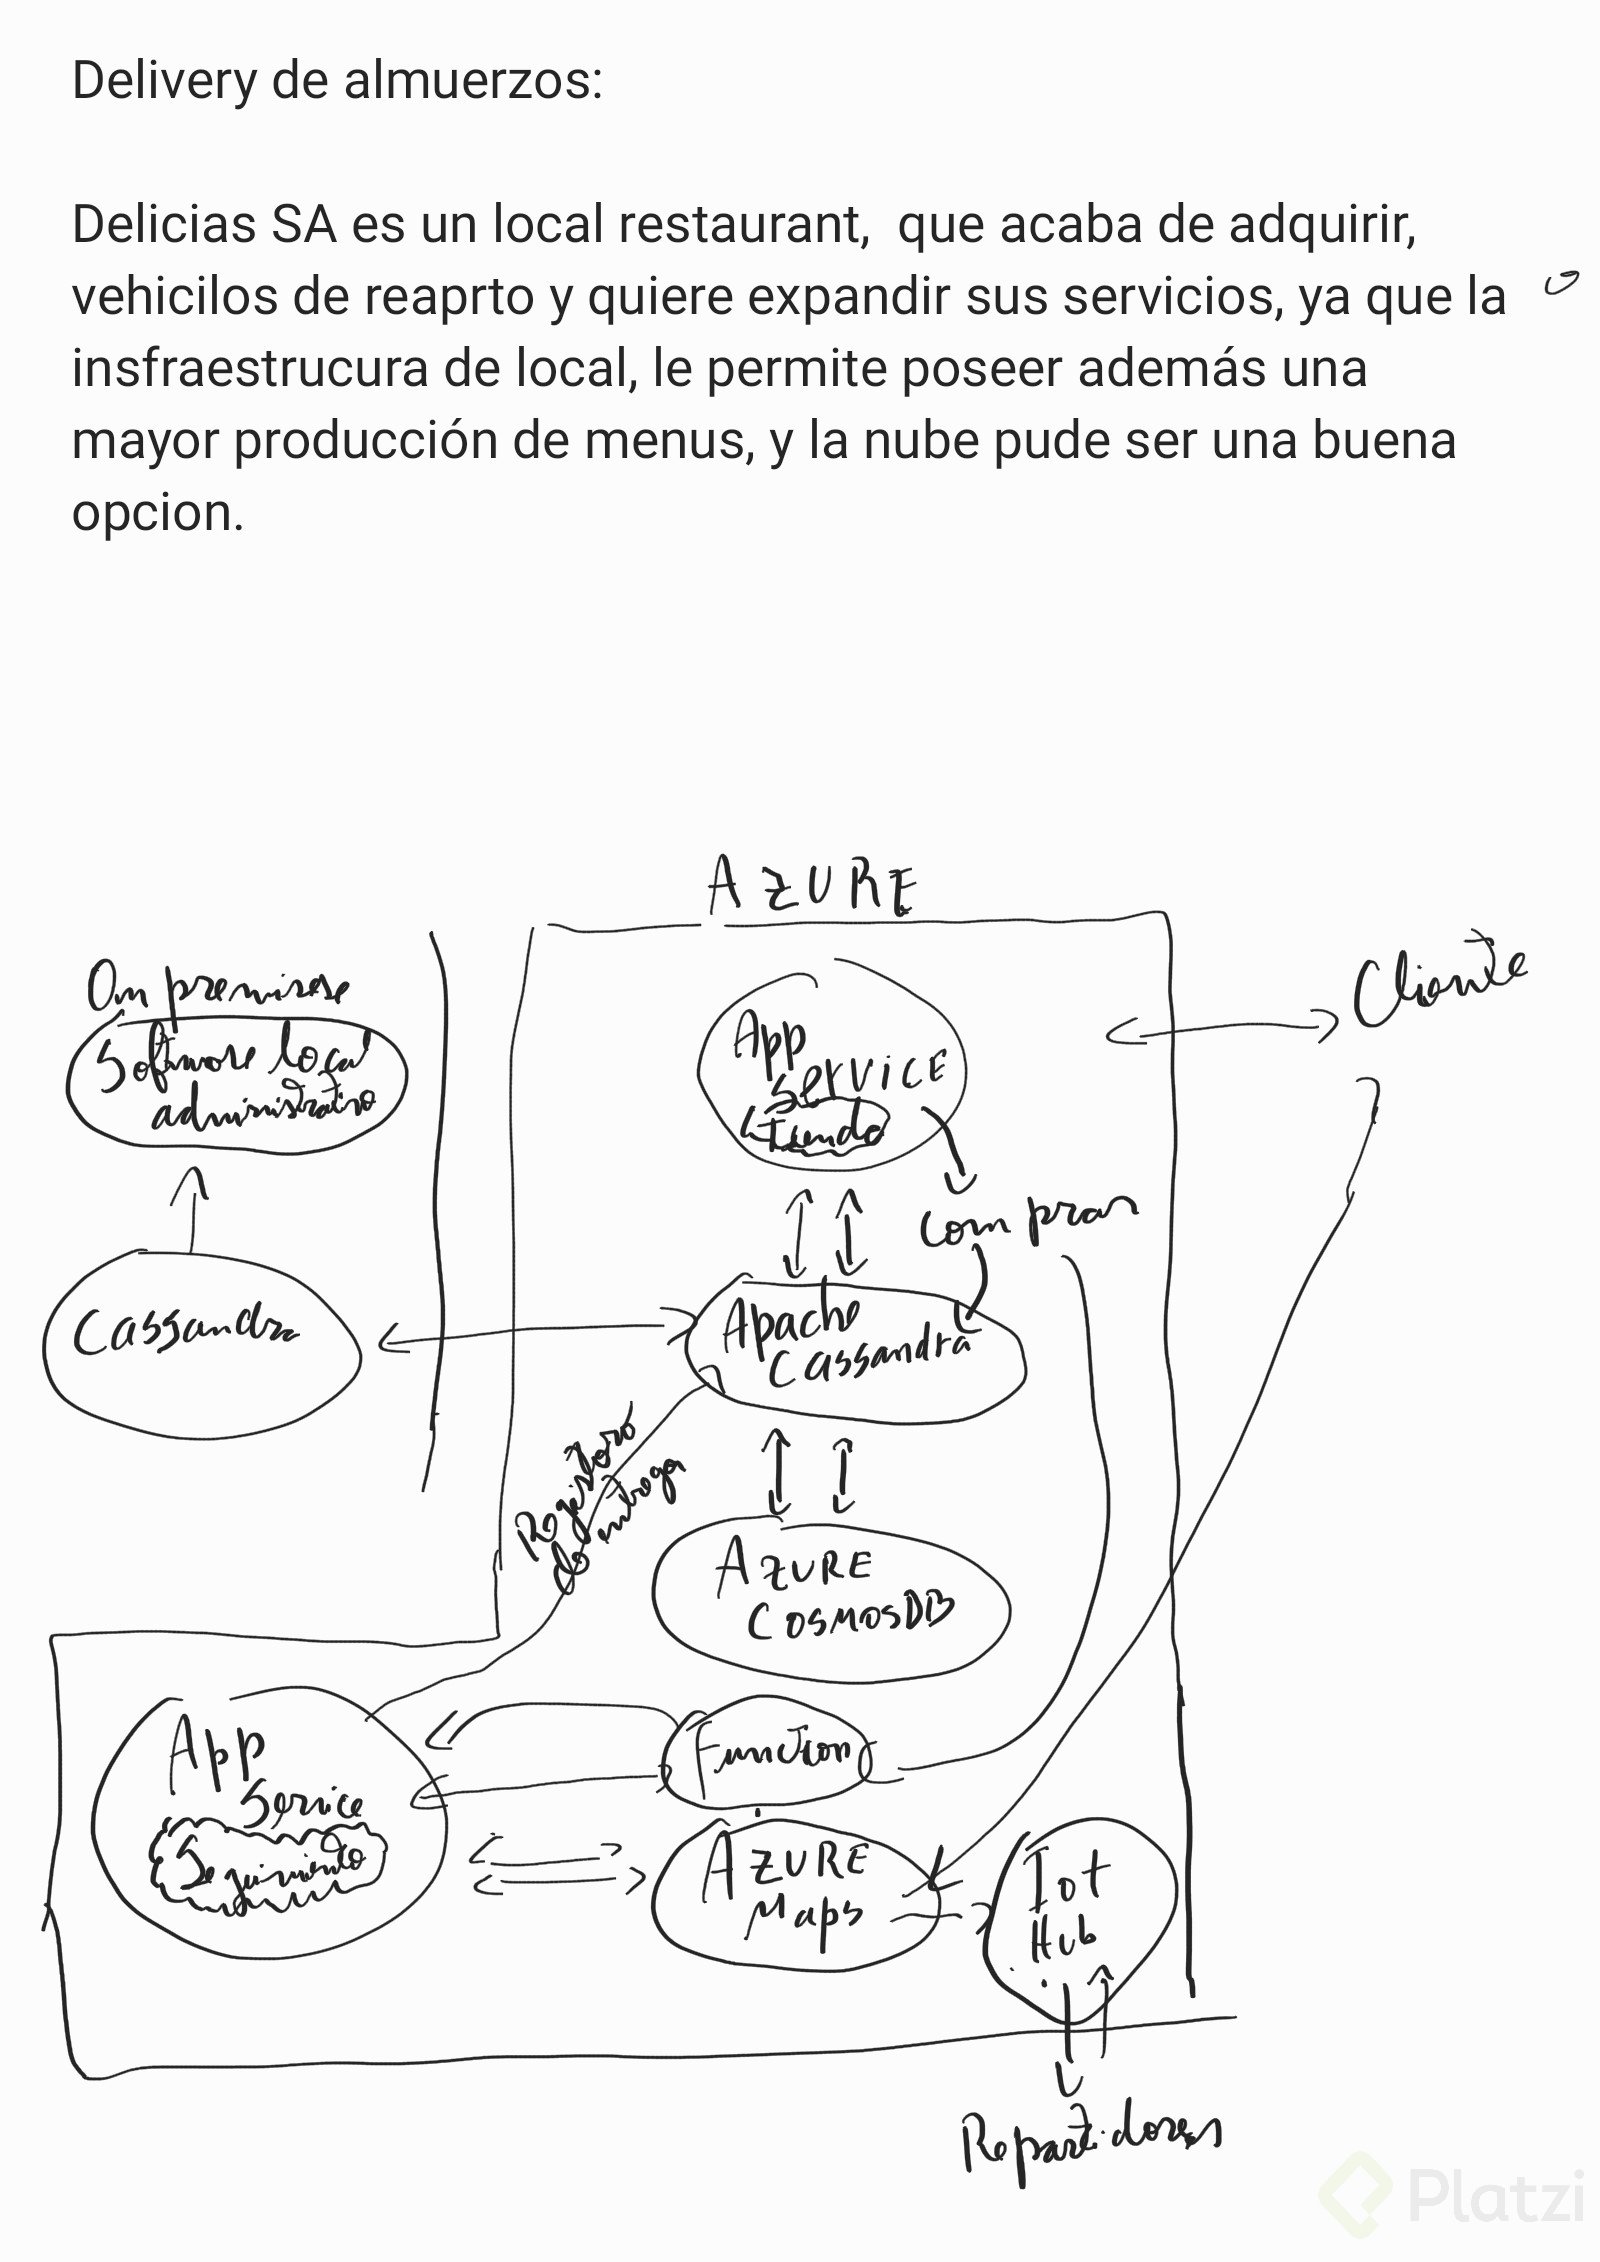 Delivery de almuerzos:
Delicias SA es un local restaurant, que acaba de adquirir,
vehicilos de reaprto y quiere expandir sus servicios, ya que la
insfraestrucura de local, le permite poseer además una
mayor producción de menus, y la nube pude ser una buena
opcion.
AZURE
On premise
Software local
administrativo
Cassandra
App
Service
tienda
Cliente
compras
Apache
Cassandra
Registro
de entrega
AZURE
COSMOSDB
App
Service
Seguimiento
Function
AZURE
Maps
Iot
Hub
Repartidores
Platzi